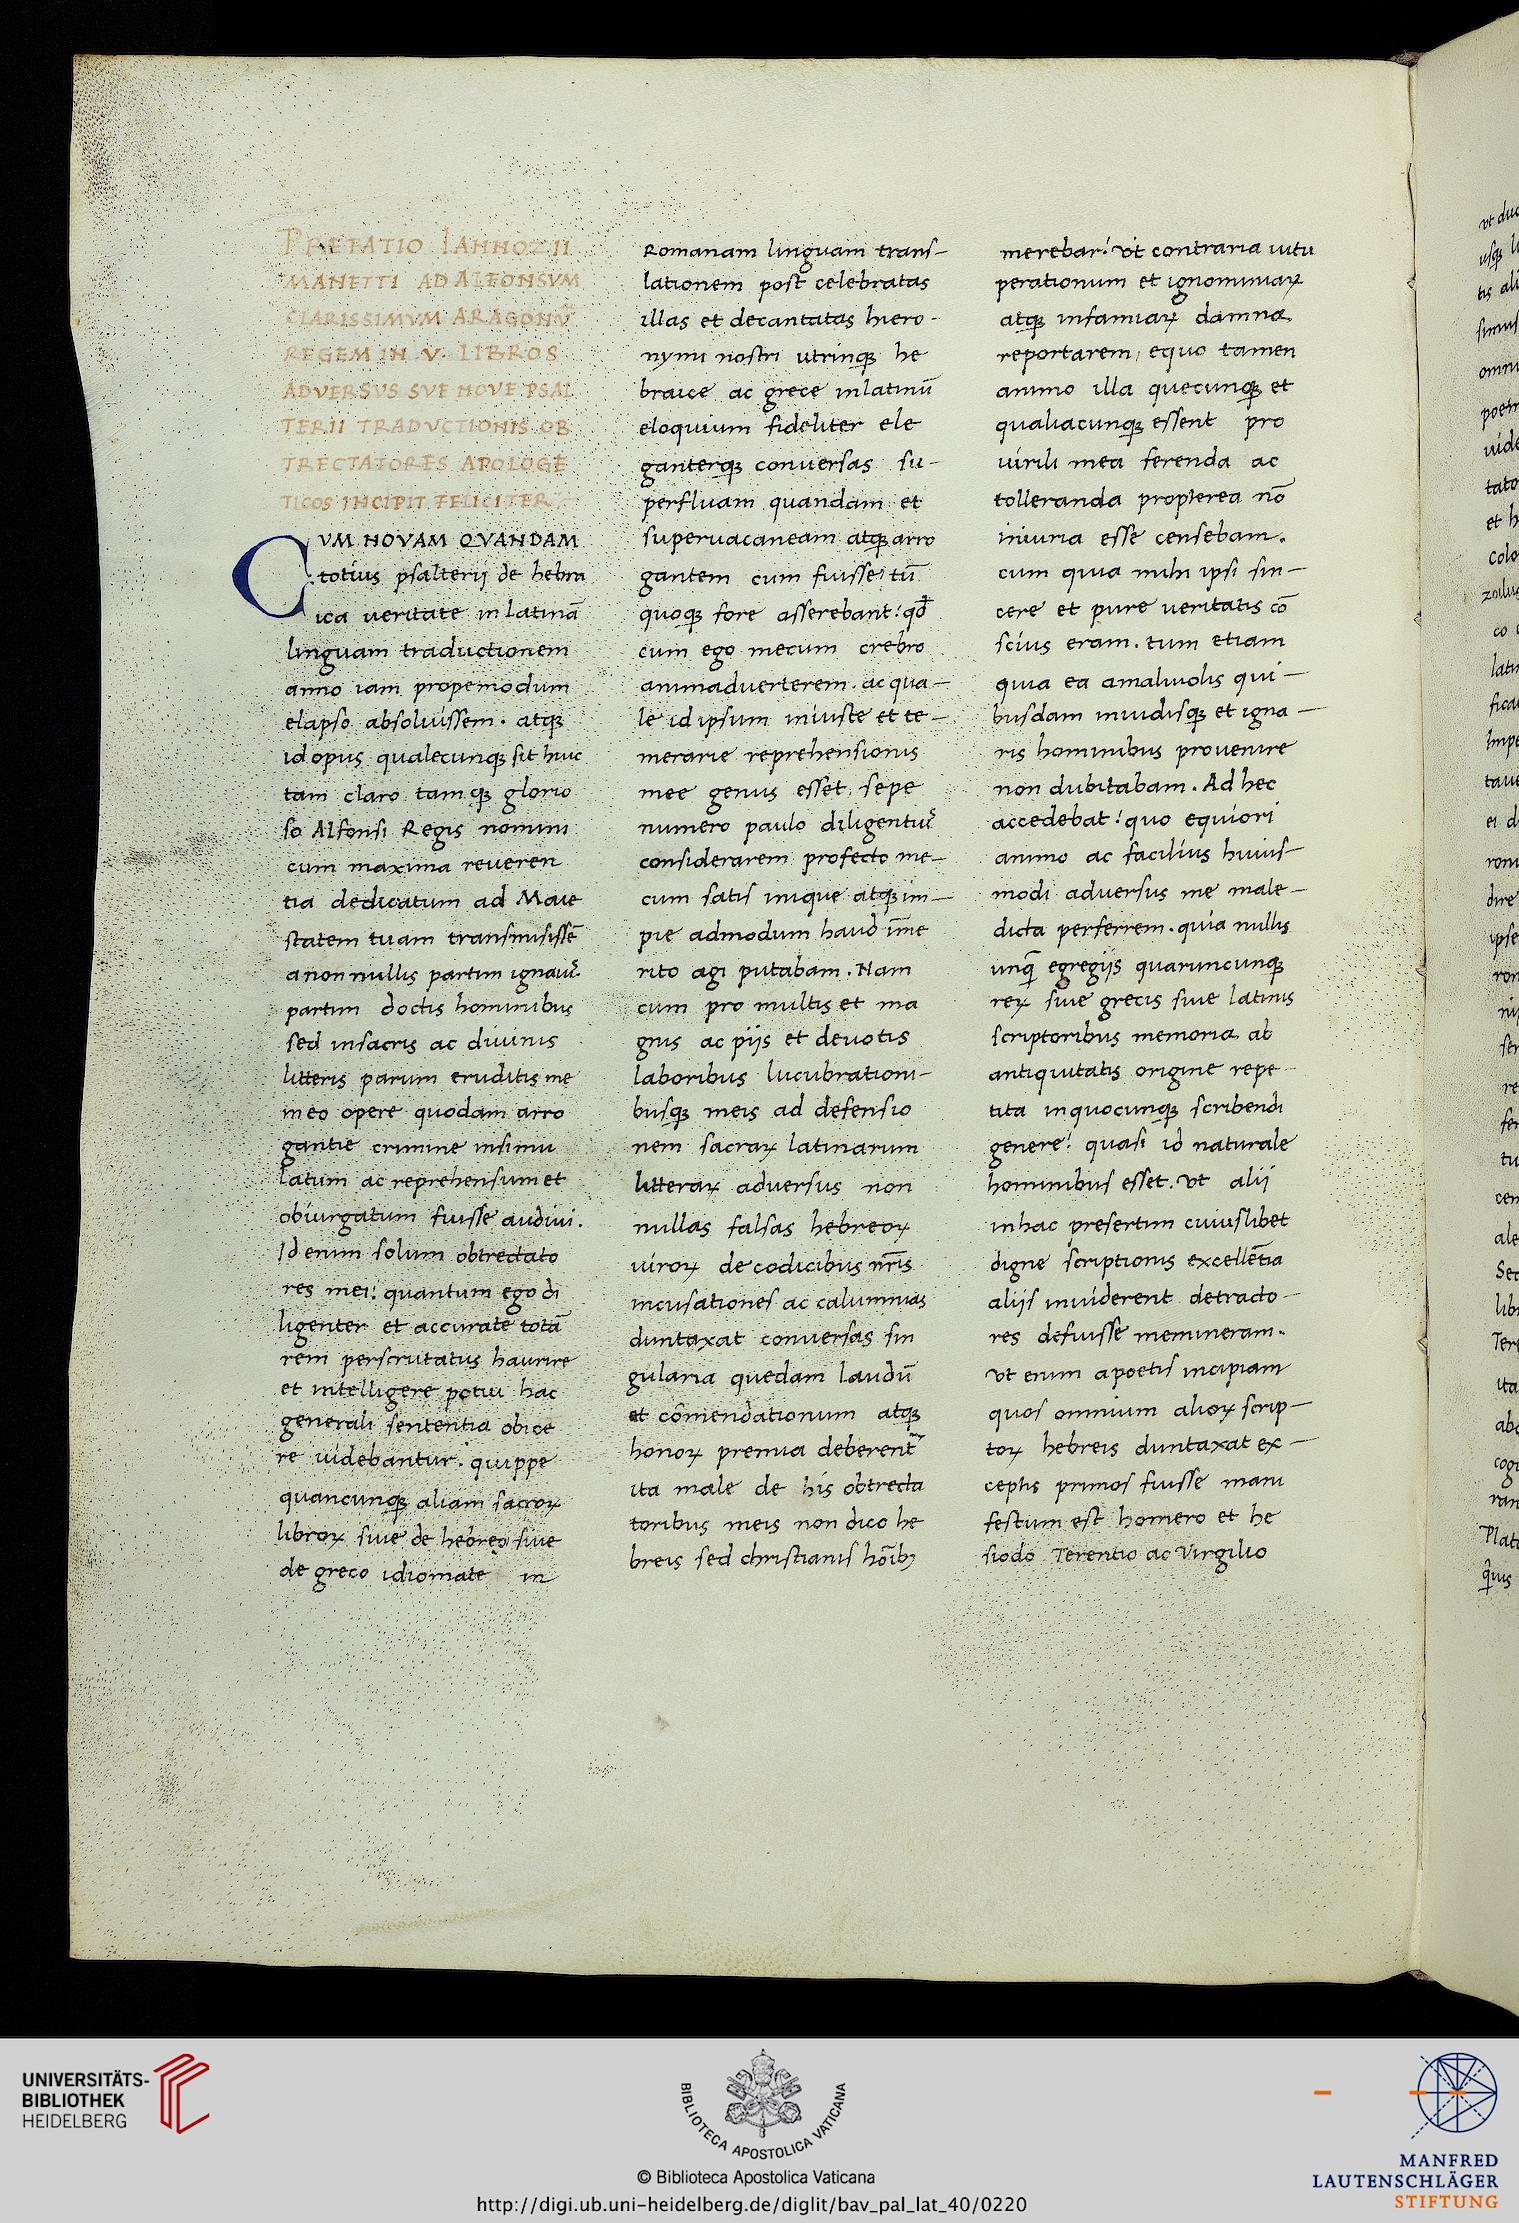 PREFATIO IANNOZII
MANETTI AD ALFONSVM
CLARISSIMVM ARAGONŪ
REGEM IN .V. LIBROS
ADVERSVS SVE NOVE PSAL
TERII TRADVCTIONIS OB
TRECTATORES APOLOGE
TICOS INCIPIT FELICITER
CVM NOVAM QVANDAM
totius psalterij de hebra
ica veritate in latinā
linguam traductionem
anno iam propemodum
elapso absoluissem. atqꝫ
id opus qualecunqꝫ sit huic
tam claro tamqꝫ glorio
so Alfonsi Regis nomini
cum maxima reveren
tia dedicatum ad Maie
statem tuam transmisissē
a non nullis partim
partim doctis hominibus
sed in sacris ac divinis
litteris parum eruditis me
in eo opere quodam arro
gantie crimine insimu
latum ac reprehensum et
obiurgatum fuisse audivi.
Id enim solum obtrectato
res mei! quantum ego di
ligenter et accurate totā
rem perscrutatus haurire
et intelligere potui hac
generali sententia obice
re videbantur. quippe
quancunqꝫ aliam sacroꝝ
libroꝝ sive de hebreo sive
de greco idiomate in
Romanam linguam trans-
lationem post celebratas
illas et decantatas hiero-
nymi nostri utrinqꝫ he
braice ac grece in latinū
eloquium fideliter ele
ganterqꝫ conversas su-
perfluam quandam et
supervacaneam atqꝫ arro
gantem cum fuisse! tū
quoqꝫ fore asserebant! qđ
cum ego mecum crebro
animadverterem. ac qua-
le id ipsum iniuste et te-
merarie reprehensionis
mee genus esset sepe
numero paulo diligentiꝰ
considerarem profecto me-
cum satis inique atqꝫ im-
pie admodum haud īme
rito agi putabam. Nam
cum pro multis et ma
gnis ac pijs et devotis
laboribus lucubrationi-
busqꝫ meis ad defensio
nem sacraꝝ latinarum
litteraꝝ adversus non
nullas falsas hebreoꝝ
viroꝝ de codicibus nr̄is
incusationes ac calumnias
duntaxat conversas sin
gularia quedam laudū
et cōmendationum atqꝫ
honoꝝ premia deberent
ita male de his obtrecta
toribus meis non dico he
breis sed christianis hōibꝫ
merebar! ut contraria vitu
perationum et ignominiaꝝ
atqꝫ infamiaꝝ damna
reportarem, equo tamen
animo illa quecunqꝫ et
qualiacunqꝫ essent pro
virili mea ferenda ac
tolleranda propterea nō
iniuria esse censebam.
cum quia mihi ipsi sin-
cere et pure veritatis cō
scius eram. tum etiam
quia ea a malivolis qui-
busdam invidisqꝫ et igna-
ris hominibus provenire
non dubitabam. Ad hec
accedebat! quo equiori
animo ac facilius huius-
modi adversus me male-
dicta perferrem. quia nullis
unqꝫ̄ egregijs quaruncunqꝫ
reꝝ sive grecis sive latinis
scriptoribus memoria ab
antiquitatis origine repe
tita in quocunqꝫ scribendi
genere! quasi id naturale
hominibus esset. ut alij
in hac presertim cuiuslibet
digne scriptionis excellētia
alijs inviderent detracto-
res defuisse memineram.
Ut enim a poetis incipiam
quos omnium alioꝝ scrip-
toꝝ hebreis duntaxat ex-
ceptis primos fuisse mani
festum est homero et he
siodo Terentio ac Virgilio
UNIVERSITÄTS-
BIBLIOTHEK
HEIDELBERG
BIBLIOTECA APOSTOLICA VATICANA
© Biblioteca Apostolica Vaticana
http://digi.ub.uni-heidelberg.de/diglit/bav_pal_lat_40/0220
MANFRED
LAUTENSCHLÄGER
STIFTUNG